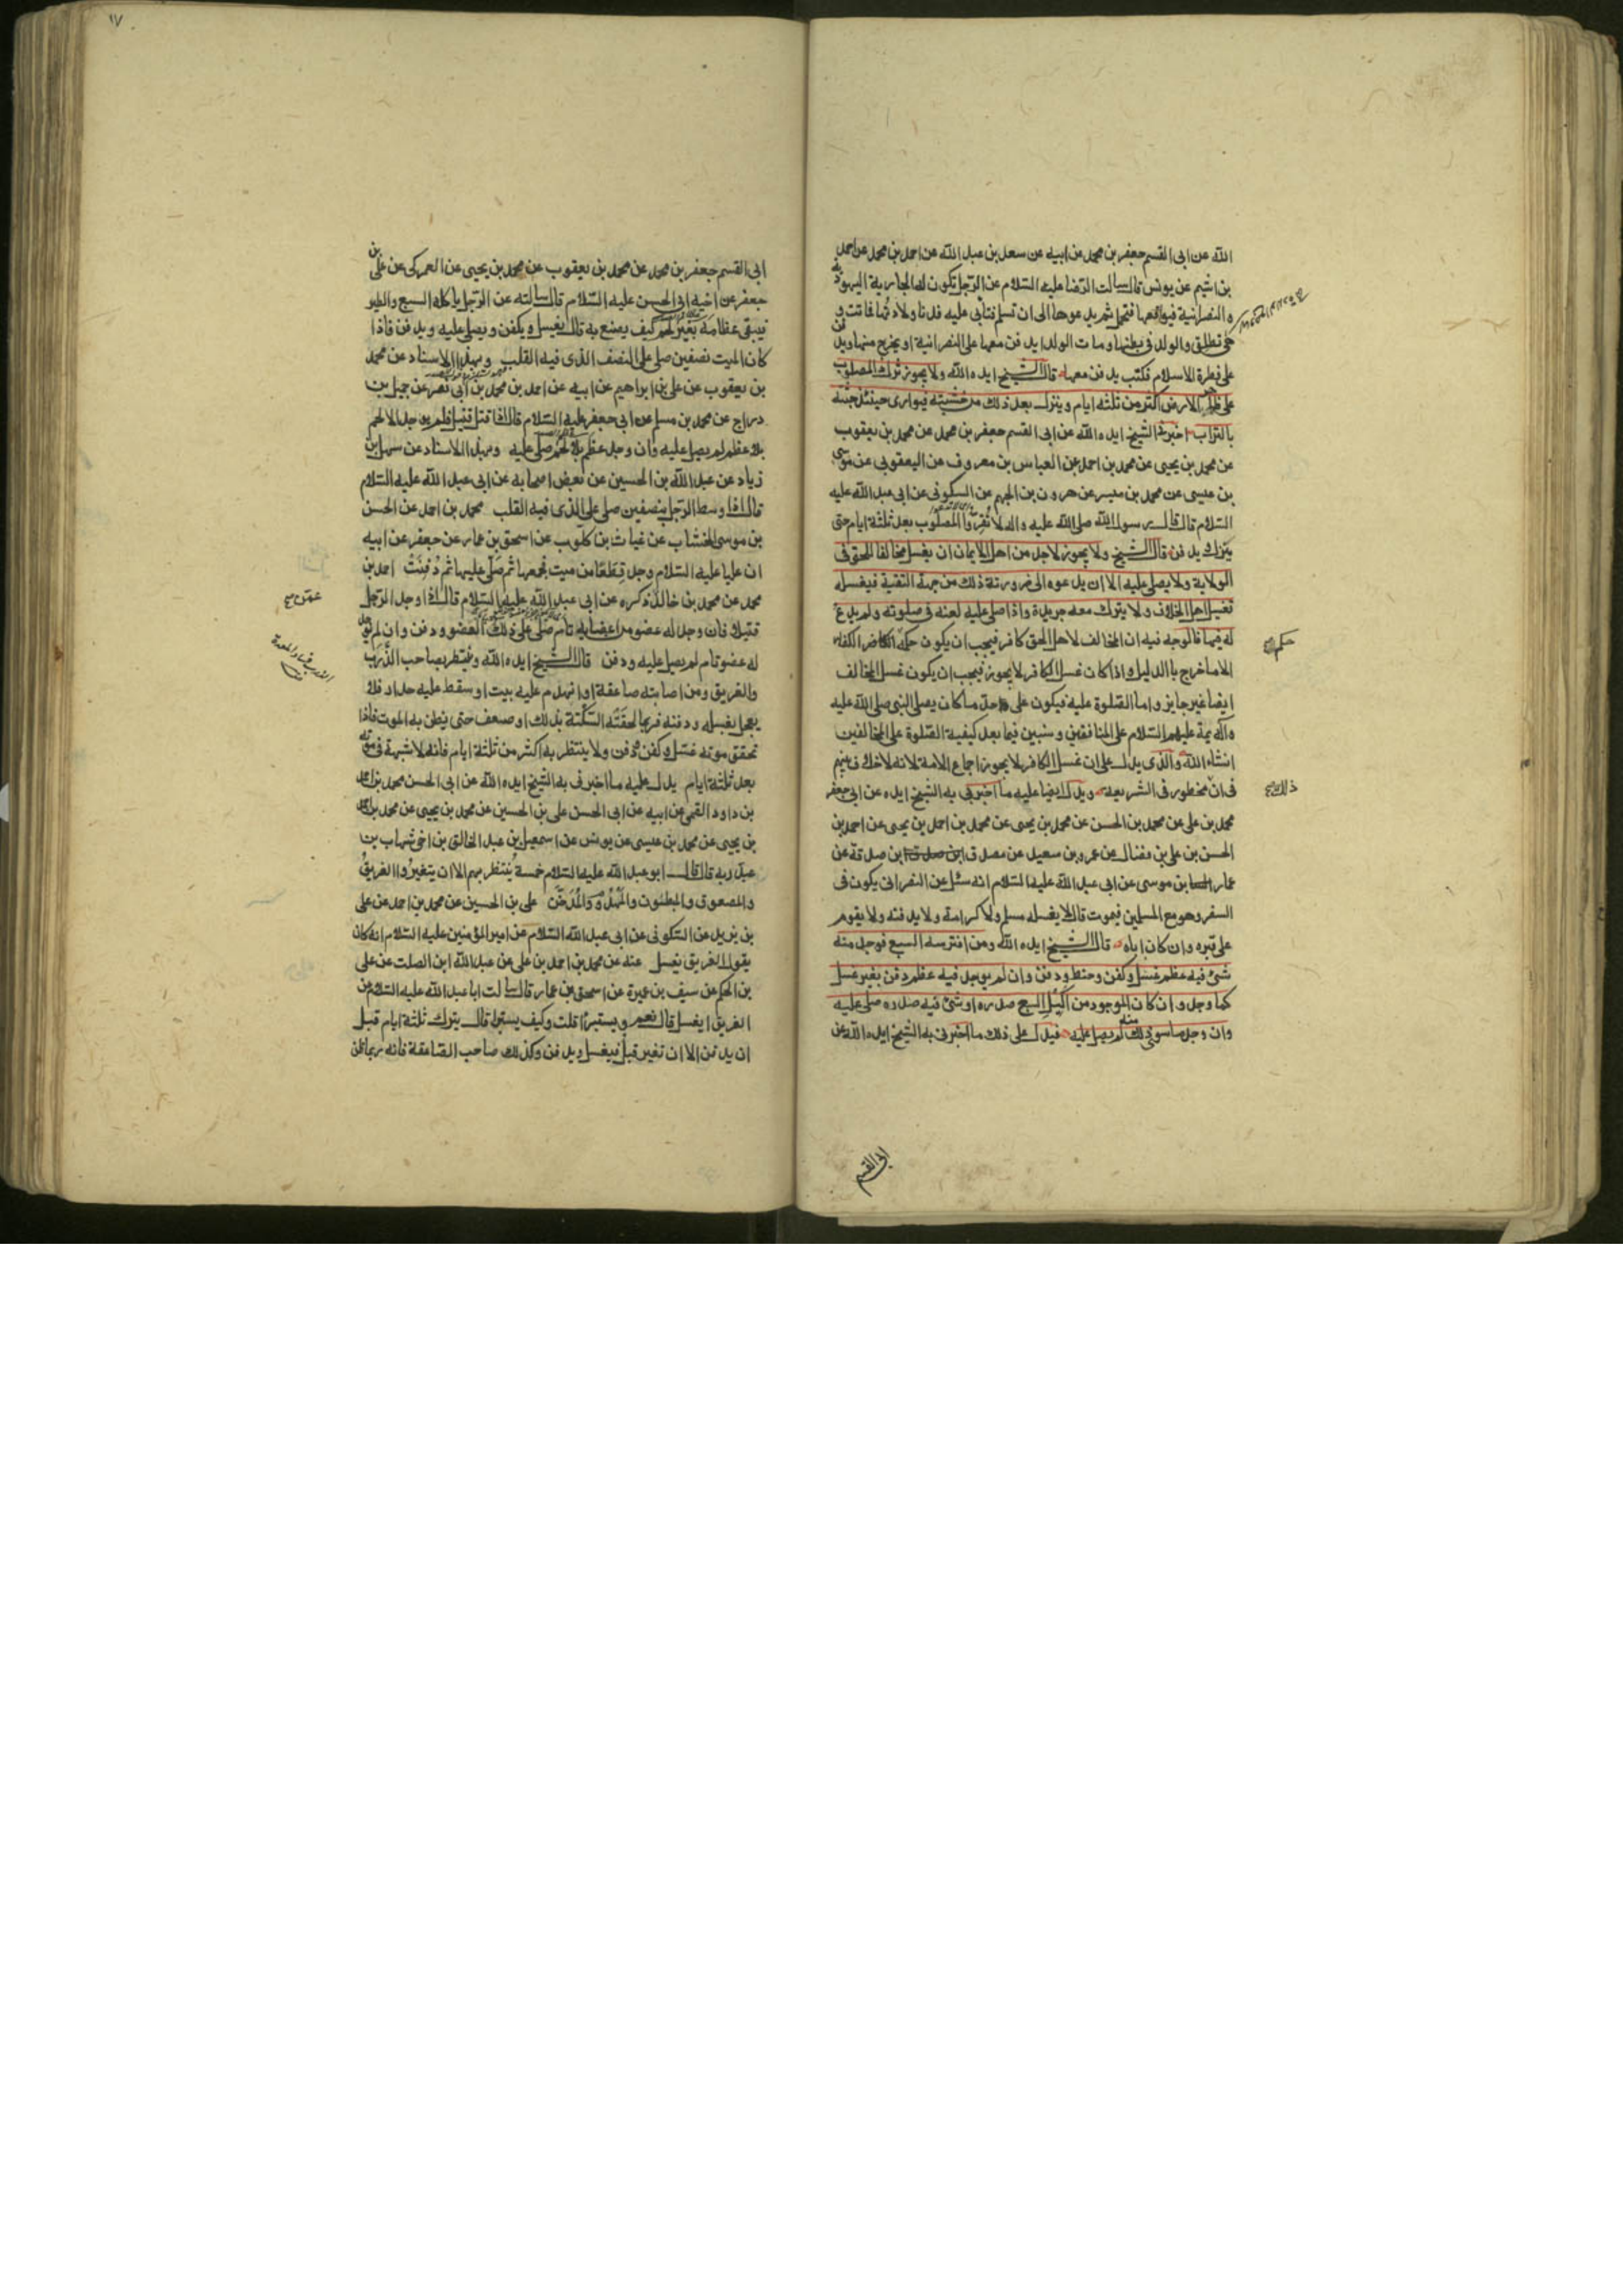 الله عن ابى القسم جعفر بن محمد عن ابيه عن سعد بن عبد الله عن احمد بن محمد عن احمد
بن اشيم عن يونس قال سالت الرضا عليه السلام عن الرجل تكون له الجارية اليهودية
و النصرانية فيواقعها فتحمل ثم يدعوها الى ان تسلم فتابى عليه فدنا ولادتها فماتت و
هى تطلق والولد فى بطنها ومات الولد ايدفن معها على النصرانية او يخرج منها ويدفن
على فطرة الاسلام فكتب يدفن معها قال الشيخ ايده الله ولا يجوز ترك المصلوب
على ظهر الارض اكثر من ثلثة ايام وينزل بعد ذلك من خشبته فيوارى حينئذ جثته
بالتراب اخبرنى الشيخ ايده الله عن ابى القسم جعفر بن محمد عن محمد بن يعقوب
عن محمد بن يحيى عن محمد بن احمد عن العباس بن معروف عن اليعقوبى عن موسى
بن عيسى عن محمد بن ميسر عن هرون بن الجهم عن السكونى عن ابى عبد الله عليه
السلام قال قال رسول الله صلى الله عليه واله لا تقروا المصلوب بعد ثلثة ايام حتى
ينزل ويدفن قال الشيخ ولا يجوز لاحد من اهل الايمان ان يغسل مخالفا للحق فى
الولاية ولا يصلى عليه الا ان يدعوه الى ضرورة ذلك من جهة التقية فيغسله
تغسيل اهل الخلاف ولا يترك معه جريدة واذا صلى عليه لعنه فى صلوته ولم يدع
له فيها فالوجه فيه ان المخالف لاهل الحق كافر فيجب ان يكون حكمه حكم الكفار
الا ما خرج بالدليل واذا كان غسل الكافر لا يجوز فيجب ان يكون غسل المخالف
ايضا غير جايز واما الصلوة عليه فيكون على حد ما كان يصلى النبى صلى الله عليه
وآله والائمة عليهم السلام على المنافقين وسنبين فيما بعد كيفية الصلوة على المخالفين
انشاء الله والذى يدل على ان غسل الكافر لا يجوز اجماع الامة لانه لا خلاف بينهم
فى ان ذلك محظور فى الشريعة ويدل ايضا عليه ما اخبرنى به الشيخ ايده عن ابى جعفر
محمد بن على عن محمد بن الحسن عن محمد بن يحيى عن محمد بن احمد بن يحيى عن احمد بن
الحسن بن على بن فضال عن عمرو بن سعيد عن مصدق بن صدقة عن
عمار بن موسى عن ابى عبد الله عليه السلام انه سئل عن النصرانى يكون فى
السفر وهو مع المسلمين فيموت قال لا يغسله مسلم ولا كرامة ولا يدفنه ولا يقوم
على قبره وان كان اباه قال الشيخ ايده الله ومن افترسه السبع فوجد منه
شئ فيه عظم غسل وكفن وحنط ودفن وان لم يوجد فيه عظم دفن بغير غسل
كما وجد وان كان الموجود من اكيل السبع صدره او شئ فيه صدره صلى عليه
وان وجد ما سوى ذلك منه لم يصل عليه فيدل على ذلك ما اخبرنى به الشيخ ايده الله عن
حكم
ذلك
ابى القسم
١٧
ابى القسم جعفر بن محمد عن محمد بن يعقوب عن محمد بن يحيى عن العمركى عن على بن
جعفر عن اخيه ابى الحسن عليه السلام قال سالته عن الرجل ياكله السبع والطير
فيبقى عظامه بغير لحم كيف يصنع به قال يغسل ويكفن ويصلى عليه ويدفن فاذا
كان الميت نصفين صلى على النصف الذى فيه القلب وبهذا الاسناد عن محمد
بن يعقوب عن على بن ابراهيم عن ابيه عن احمد بن محمد بن ابى نصر عن جميل بن
دراج عن محمد بن مسلم عن ابى جعفر عليه السلام قال اذا قتل قتيل فلم يوجد الا لحم
بلا عظم لم يصل عليه وان وجد عظم بلا لحم صلى عليه وبهذا الاسناد عن سهل بن
زياد عن عبد الله بن الحسين عن بعض اصحابه عن ابى عبد الله عليه السلام
قال اذا وسط الرجل بنصفين صلى على الذى فيه القلب محمد بن احمد عن الحسن
بن موسى الخشاب عن غياث بن كلوب عن اسحق بن عمار عن جعفر عن ابيه
ان عليا عليه السلام وجد قطعا من ميت فجمعها ثم صلى عليها ثم دفنت احمد بن
محمد عن محمد بن خالد ذكره عن ابى عبد الله عليه السلام قال اذا وجد الرجل
قتيلا فان وجد له عضو من اعضايه تام صلى على ذلك العضو ودفن وان لم يوجد
له عضو تام لم يصل عليه ودفن قال الشيخ ايده الله وينتظر بصاحب الذرب
والغريق ومن اصابته صاعقة او انهدم عليه بيت او سقط عليه جدار فلا
يعجل بغسله ودفنه فربما لحقته السكتة بذلك او ضعف حتى يظن به الموت فاذا
تحقق موته غسل وكفن ودفن ولا ينتظر به اكثر من ثلثة ايام فانه لا شبهة فى موته
بعد ثلثة ايام يدل عليه ما اخبرنى به الشيخ ايده الله عن ابى الحسن محمد بن احمد
بن داود القمى عن ابيه عن ابى الحسن على بن الحسين عن محمد بن يحيى عن محمد بن احمد
بن يحيى عن محمد بن عيسى عن يونس عن اسمعيل بن عبد الخالق بن اخى شهاب بن
عبد ربه قال قال ابو عبد الله عليه السلام خمسة ينتظر بهم الا ان يتغيروا الغريق
والمصعوق والمبطون والمهدوم والمدخن على بن الحسين عن محمد بن احمد عن على
بن يزيد عن السكونى عن ابى عبد الله السلام عن امير المؤمنين عليه السلام انه كان
يقول الغريق يغسل عنه عن محمد بن احمد بن على عن عبد الله ابن الصلت عن على
بن الحكم عن سيف بن عميرة عن اسحق بن عمار قال سالت ابا عبد الله عليه السلام عن
الغريق ايغسل قال نعم ويستبرا قلت وكيف يستبرا قال يترك ثلثة ايام قبل
ان يدفن الا ان تغير قبل فيغسل ويدفن وكذلك صاحب الصاعقة فانه ربما ظن